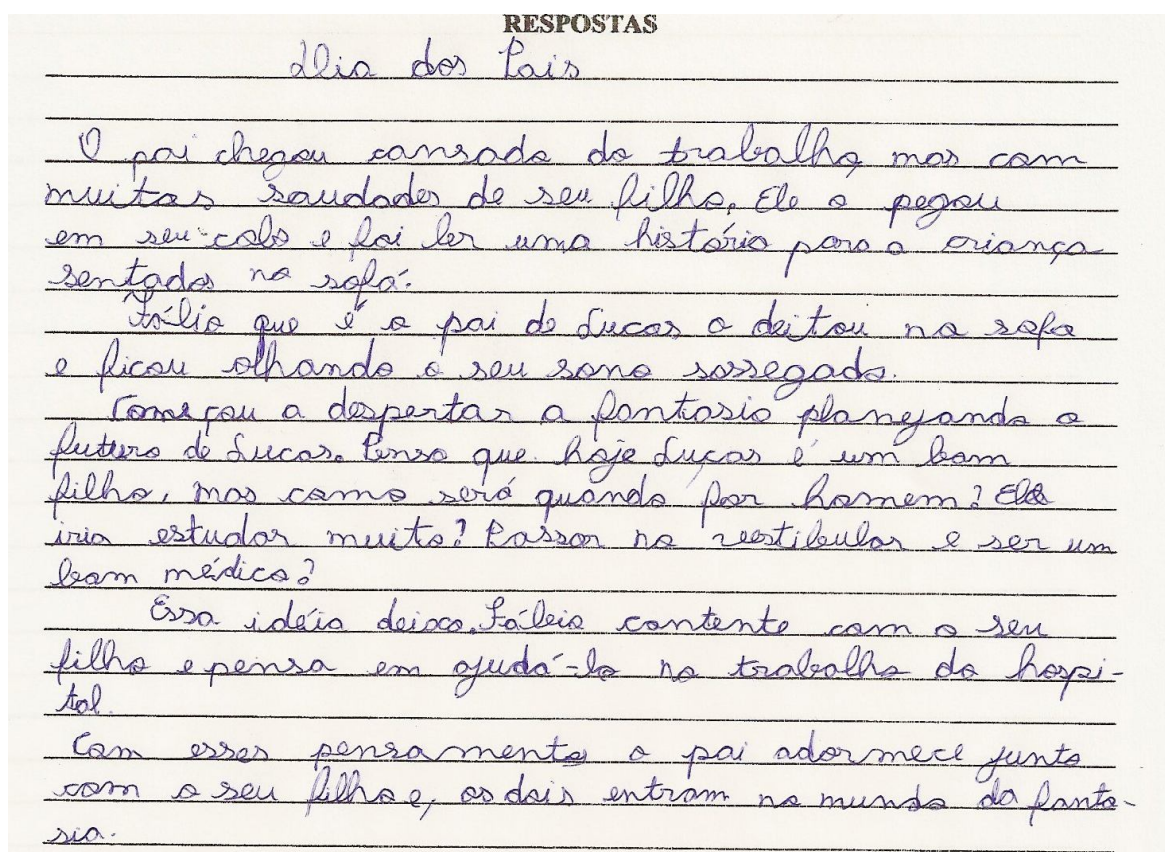 RESPOSTAS
Dia dos Pais
O pai chegou cansado do trabalho, mas com
muitas saudades de seu filho. Ele o pegou
em seu colo e foi ler uma história para a criança
sentados no sofá.
que é o pai de Lucas o deitou no sofa
e ficou olhando o seu sono sossegado.
Começou a despertar a fantasia planejando o
futuro de Lucas. Pensa que hoje Lucas é um bom
filho, mas como será quando for homem? Ele
iria estudar muito? Passar no vestibular e ser um
bom médico?
Essa idéia deixa contente com o seu
filho e pensa em ajudá-lo no trabalho do hospi-
tal.
Com esses pensamento o pai adormece junto
com o seu filho e, os dois entram no mundo da fanta-
sia.